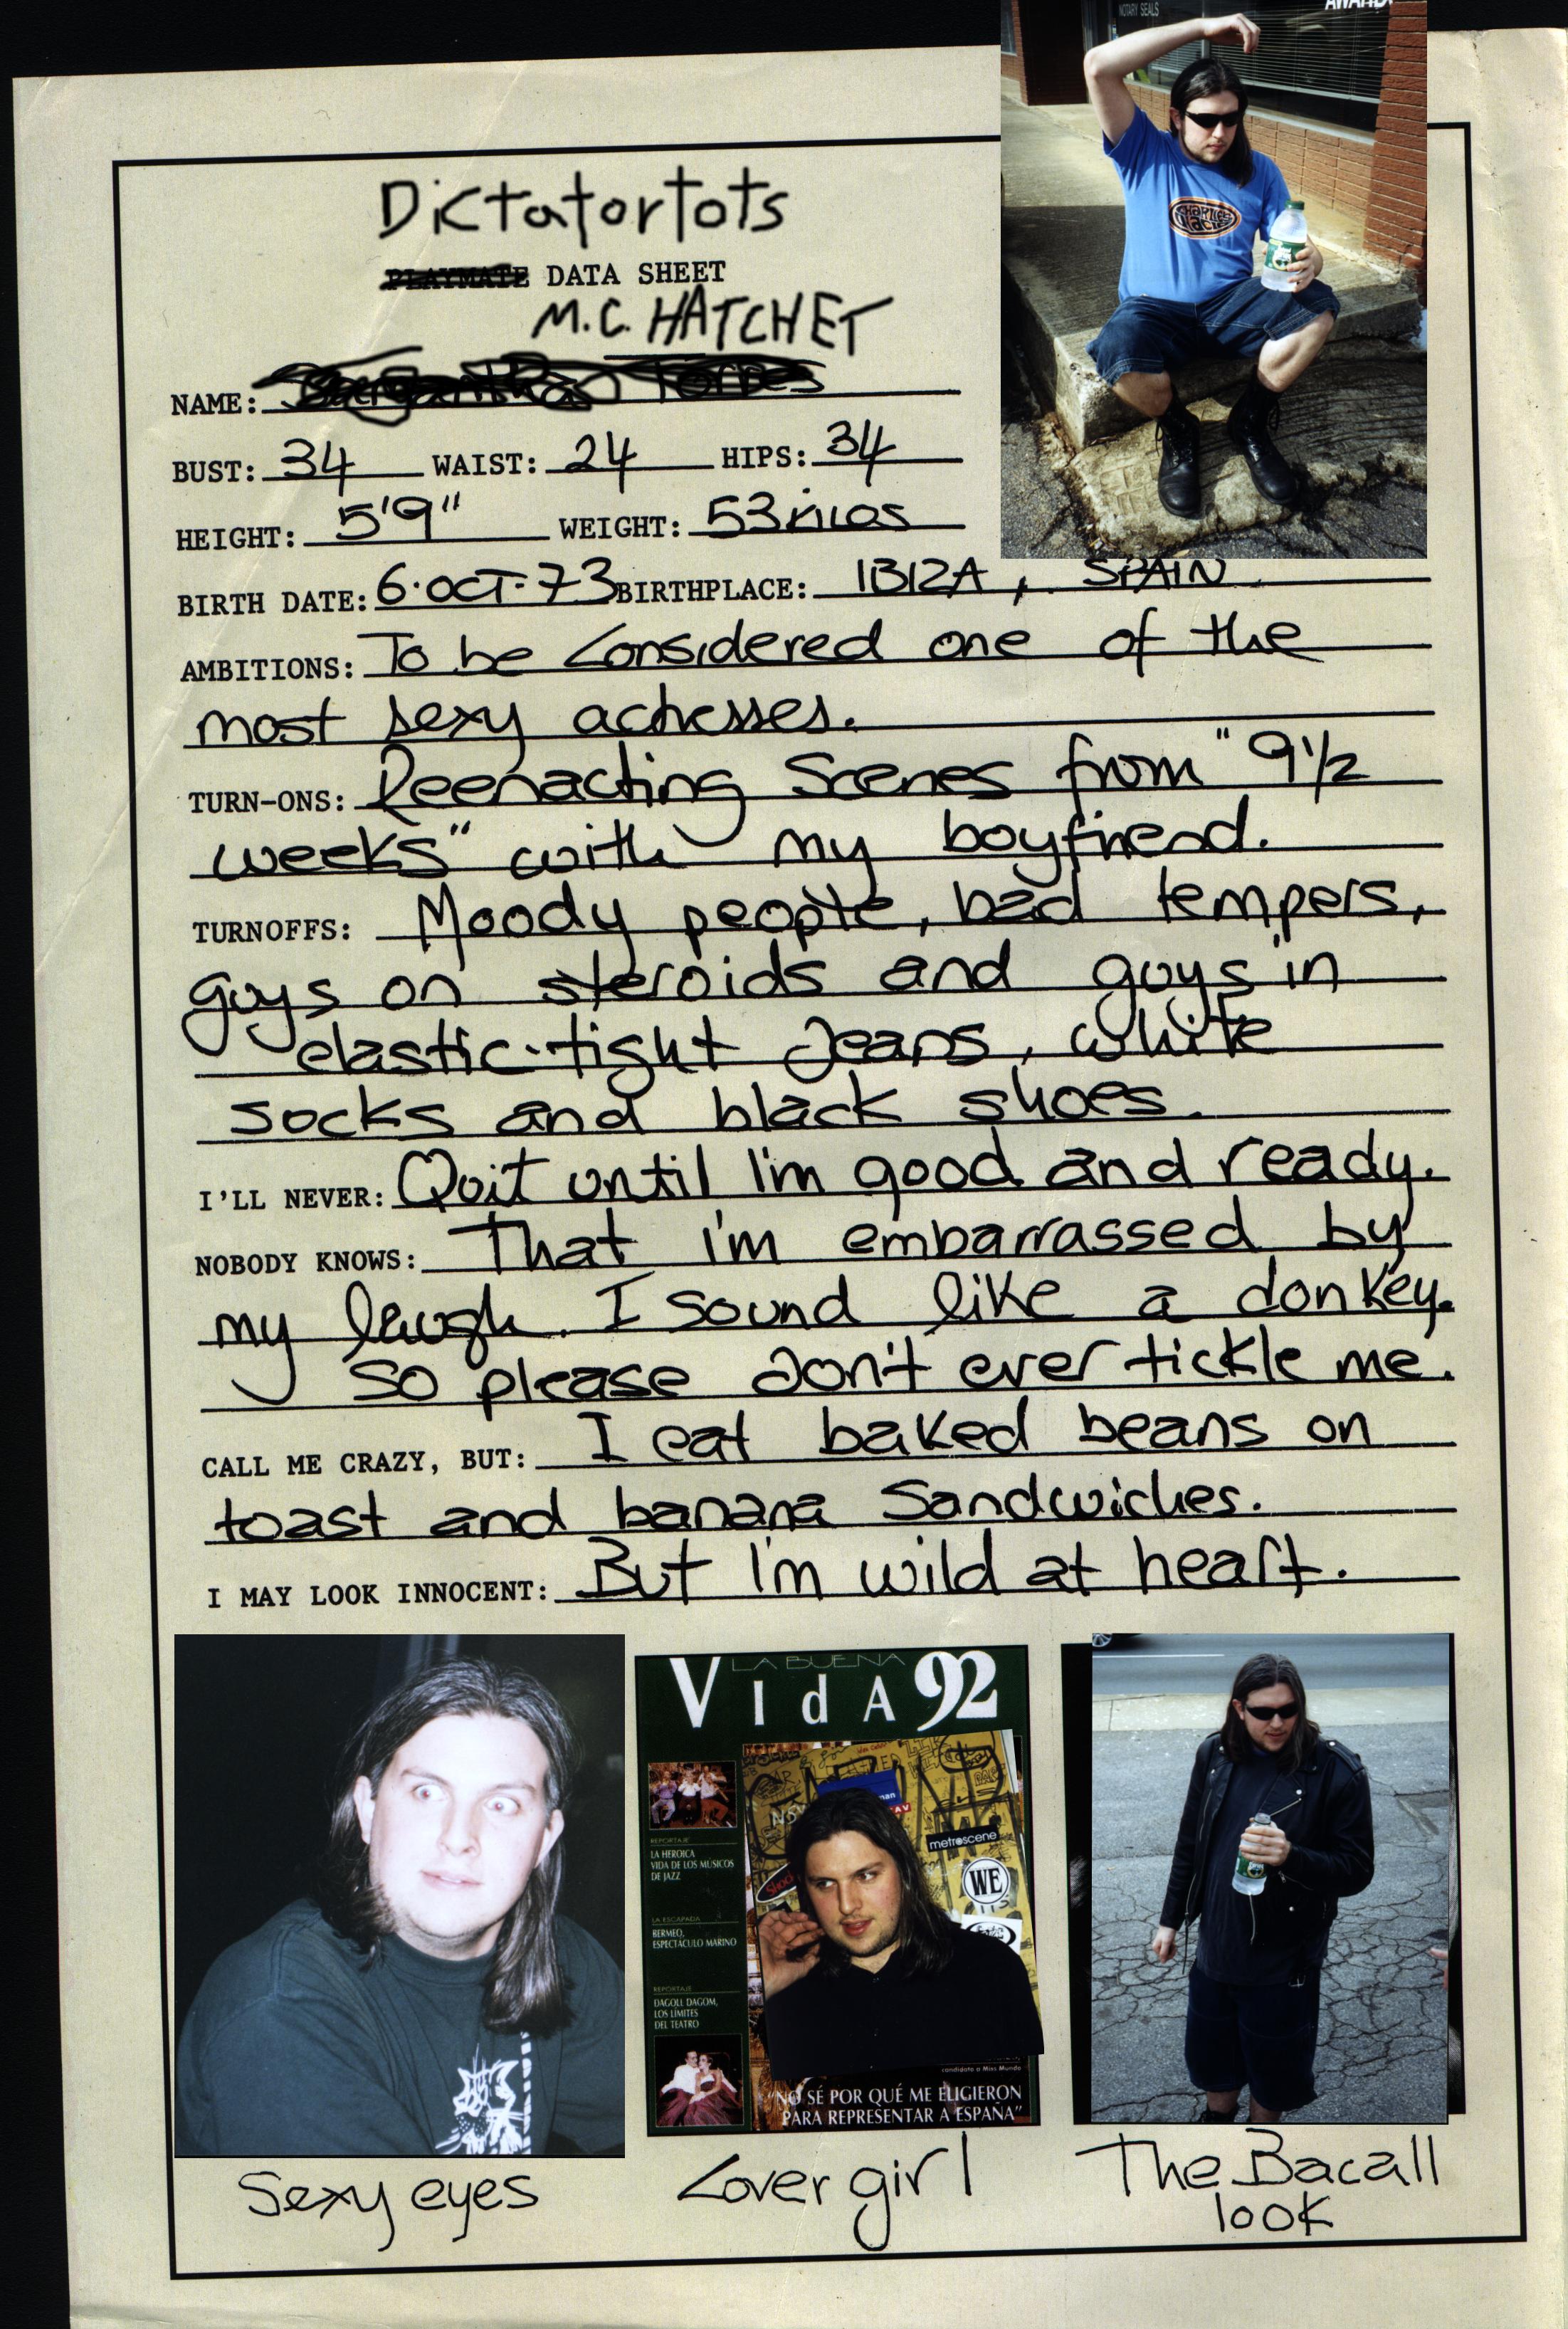 NOTARY SEALS
AWARDS
Dictatortots
PLAYMATE DATA SHEET
M.C. HATCHET
NAME: Torres
BUST: 34 WAIST: 24 HIPS: 34
HEIGHT: 5'9" WEIGHT: 53 kilos
BIRTH DATE: 6·OCT·73 BIRTHPLACE: IBIZA, SPAIN
AMBITIONS: To be considered one of the
most sexy actresses.
TURN-ONS: Reenacting Scenes from "9½
weeks" with my boyfriend.
TURNOFFS: Moody people, bad tempers,
guys on steroids and guys in
elastic-tight Jeans, white
socks and black shoes.
I'LL NEVER: Quit until I'm good and ready.
NOBODY KNOWS: That i'm embarrassed by
my laugh. I sound like a donkey.
so please don't ever tickle me.
CALL ME CRAZY, BUT: I eat baked beans on
toast and banana Sandwiches.
I MAY LOOK INNOCENT: But I'm wild at heart.
LA BUENA
VIdA 92
REPORTAJE
LA HEROICA
VIDA DE LOS MUSICOS
DE JAZZ
LA ESCAPADA
BERMEO,
ESPECTACULO MARINO
REPORTAJE
DAGOLL DAGOM,
LOS LÍMITES
DEL TEATRO
metroscene
WE
candidata a Miss Mundo
"NO SÉ POR QUÉ ME ELIGIERON
PARA REPRESENTAR A ESPAÑA"
Sexy eyes
Cover girl
The Bacall
look